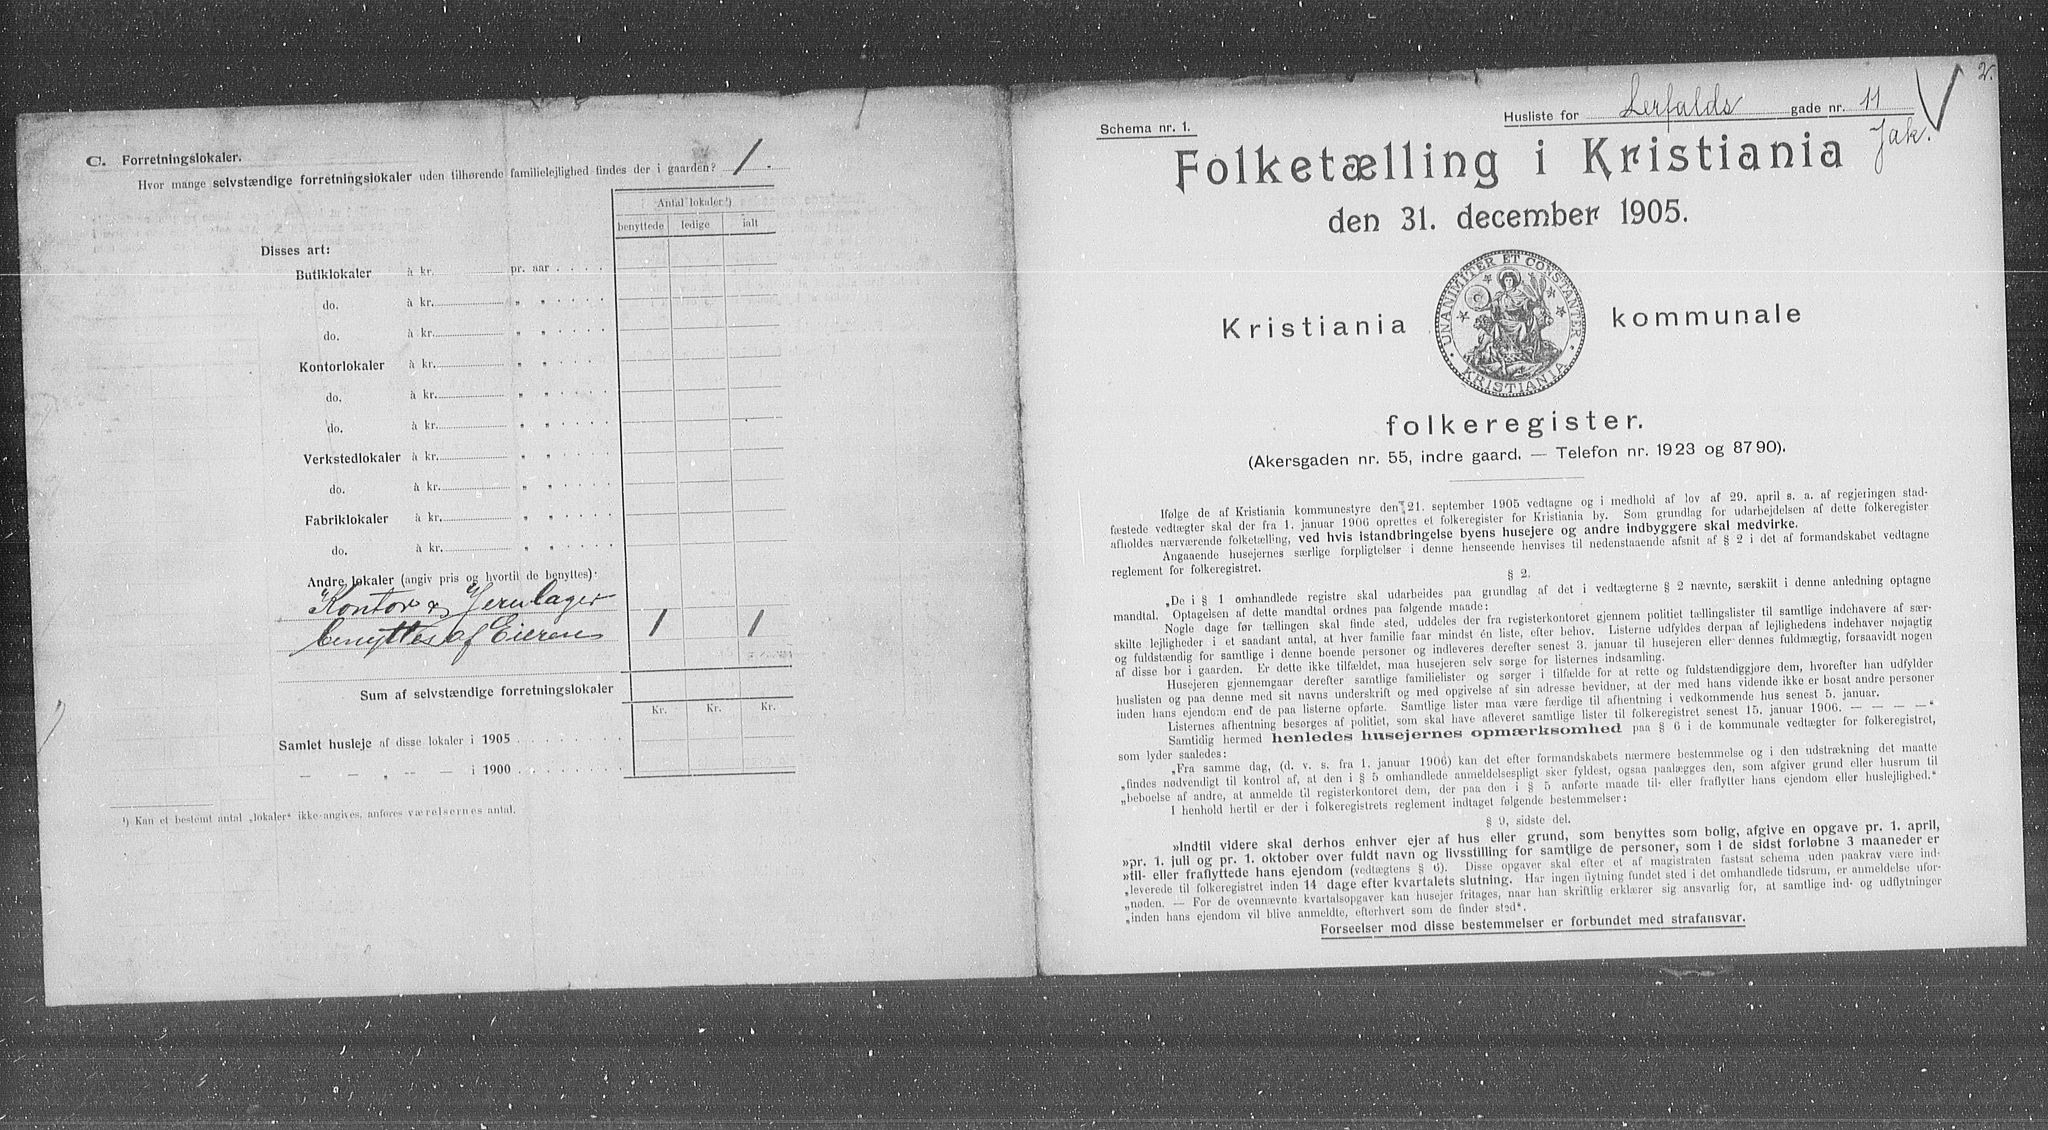 C. Forretningslokaler.
Hvor mange selvstændige forretningslokaler uden tilhørende familielejlighed findes der i gaarden? 1.
Antal lokaler ¹)
benyttede ledige ialt
Disses art:
Butiklokaler à kr. pr. aar
do. à kr. " "
do. à kr. " "
Kontorlokaler à kr. " "
do. à kr. " "
do. à kr. " "
Verkstedlokaler à kr. " "
do. à kr. " "
Fabriklokaler à kr. " "
do. à kr. " "
Andre lokaler (angiv pris og hvortil de benyttes):
Kontor & Jernlager
benyttes af Eieren 1 1
Sum af selvstændige forretningslokaler
Kr. Kr. Kr.
Samlet husleje af disse lokaler i 1905
— — „ — — i 1900
¹) Kan et bestemt antal „lokaler“ ikke angives, anføres værelsernes antal.
2.
Husliste for Lerfalds gade nr. 11
Schema nr. 1.
Jak.
Folketælling i Kristiania
den 31. december 1905.
Kristiania kommunale
UNANIMITER ET CONSTANTER
KRISTIANIA
folkeregister.
(Akersgaden nr. 55, indre gaard. — Telefon nr. 1923 og 8790).
Ifølge de af Kristiania kommunestyre den 21. september 1905 vedtagne og i medhold af lov af 29. april s. a. af regjeringen stad-
fæstede vedtægter skal der fra 1. januar 1906 oprettes et folkeregister for Kristiania by. Som grundlag for udarbejdelsen af dette folkeregister
afholdes nærværende folketælling, ved hvis istandbringelse byens husejere og andre indbyggere skal medvirke.
Angaaende husejernes særlige forpligtelser i denne henseende henvises til nedenstaaende afsnit af § 2 i det af formandskabet vedtagne
reglement for folkeregistret.
§ 2.
„De i § 1 omhandlede registre skal udarbeides paa grundlag af det i vedtægterne § 2 nævnte, særskilt i denne anledning optagne
mandtal. Optagelsen af dette mandtal ordnes paa følgende maade:
Nogle dage før tællingen skal finde sted, uddeles der fra registerkontoret gjennem politiet tællingslister til samtlige indehavere af sær-
skilte lejligheder i et saadant antal, at hver familie faar mindst én liste, efter behov. Listerne udfyldes derpaa af lejlighedens indehaver nøjagtig
og fuldstændig for samtlige i denne boende personer og indleveres derefter senest 3. januar til husejeren eller dennes fuldmægtig, forsaavidt nogen
af disse bor i gaarden. Er dette ikke tilfældet, maa husejeren selv sørge for listernes indsamling.
Husejeren gjennemgaar derefter samtlige familielister og sørger i tilfælde for at rette og fuldstændiggjøre dem, hvorefter han udfylder
huslisten og paa denne med sit navns underskrift og med opgivelse af sin adresse bevidner, at der med hans vidende ikke er bosat andre personer
inden hans ejendom end de paa listerne opførte. Samtlige lister maa være færdige til afhentning i vedkommende hus senest 5. januar.
Listernes afhentning besørges af politiet, som skal have afleveret samtlige lister til folkeregistret senest 15. januar 1906. — — — — “
Samtidig hermed henledes husejernes opmærksomhed paa § 6 i de kommunale vedtægter for folkeregistret,
som lyder saaledes:
„Fra samme dag, (d. v. s. fra 1. januar 1906) kan det efter formandskabets nærmere bestemmelse og i den udstrækning det maatte
„findes nødvendigt til kontrol af, at den i § 5 omhandlede anmeldelsespligt sker fyldest, ogsaa paalægges den, som afgiver grund eller husrum til
„beboelse af andre, at anmelde til registerkontoret dem, der paa den i § 5 anførte maade til- eller fraflytter hans ejendom eller huslejlighed.“
I henhold hertil er der i folkeregistrets reglement indtaget følgende bestemmelser:
§ 9, sidste del.
»Indtil videre skal derhos enhver ejer af hus eller grund, som benyttes som bolig, afgive en opgave pr. 1. april,
»pr. 1. juli og pr. 1. oktober over fuldt navn og livsstilling for samtlige de personer, som i de sidst forløbne 3 maaneder er
»til- eller fraflyttede hans ejendom (vedtægtens § 6). Disse opgaver skal efter et af magistraten fastsat schema uden paakrav være ind-
„leverede til folkeregistret inden 14 dage efter kvartalets slutning. Har ingen flytning fundet sted i det omhandlede tidsrum, er anmeldelse ufor-
„nøden. — For de ovennævnte kvartalsopgaver kan husejer fritages, naar han skriftlig erklærer sig ansvarlig for, at samtlige ind- og udflytninger
„inden hans ejendom vil blive anmeldte, efterhvert som de finder sted“.
Forseelser mod disse bestemmelser er forbundet med strafansvar.